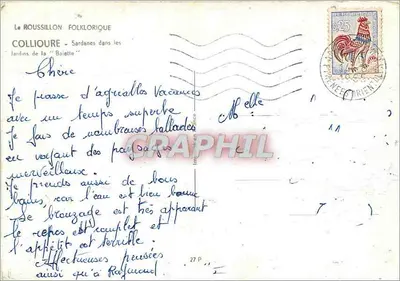 Le ROUSSILLON FOLKLORIQUE
COLLIOURE - Sardanes dans les
Jardins de la "Balette"
Chère
Je passe d'agréables vacances
avec un temps superbe
Je fais de nombreuses ballades
en voyant des paysages
merveilleux.
Je prends aussi de bons
bains, car l'eau est bien bonne
Le bronzage est très apparant
le repos est complet et
l'appétit est terrible.
Affectueuses pensées
ainsi qu'à Raymond
Melle
CARTAPHIL.COM
27 P